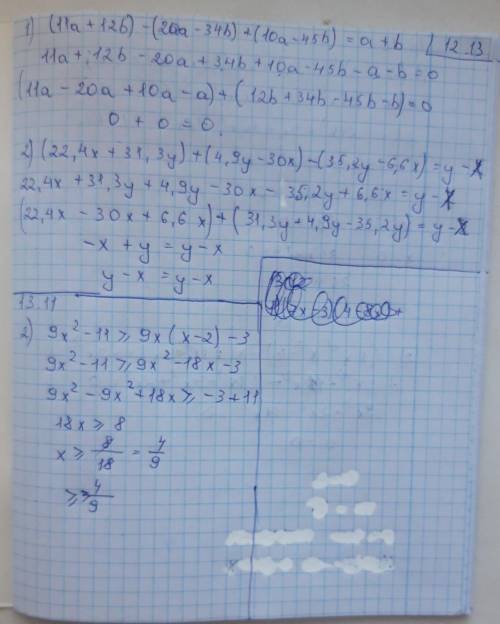 1) (11a + 12b) - (20a - 34b) + (10a - 45b) = a + b
12.13
11a + 12b - 20a + 34b + 10a - 45b - a - b = 0
(11a - 20a + 10a - a) + (12b + 34b - 45b - b) = 0
0 + 0 = 0
2) (22,4x + 31,3y) + (4,9y - 30x) - (35,2y - 6,6x) = y - x
22,4x + 31,3y + 4,9y - 30x - 35,2y + 6,6x = y - x
(22,4x - 30x + 6,6x) + (31,3y + 4,9y - 35,2y) = y - x
-x + y = y - x
y - x = y - x
13.11
2) 9x² - 11 ≥ 9x(x - 2) - 3
9x² - 11 ≥ 9x² - 18x - 3
9x² - 9x² + 18x ≥ -3 + 11
18x ≥ 8
x ≥ 8/18 = 4/9
≥ 4/9